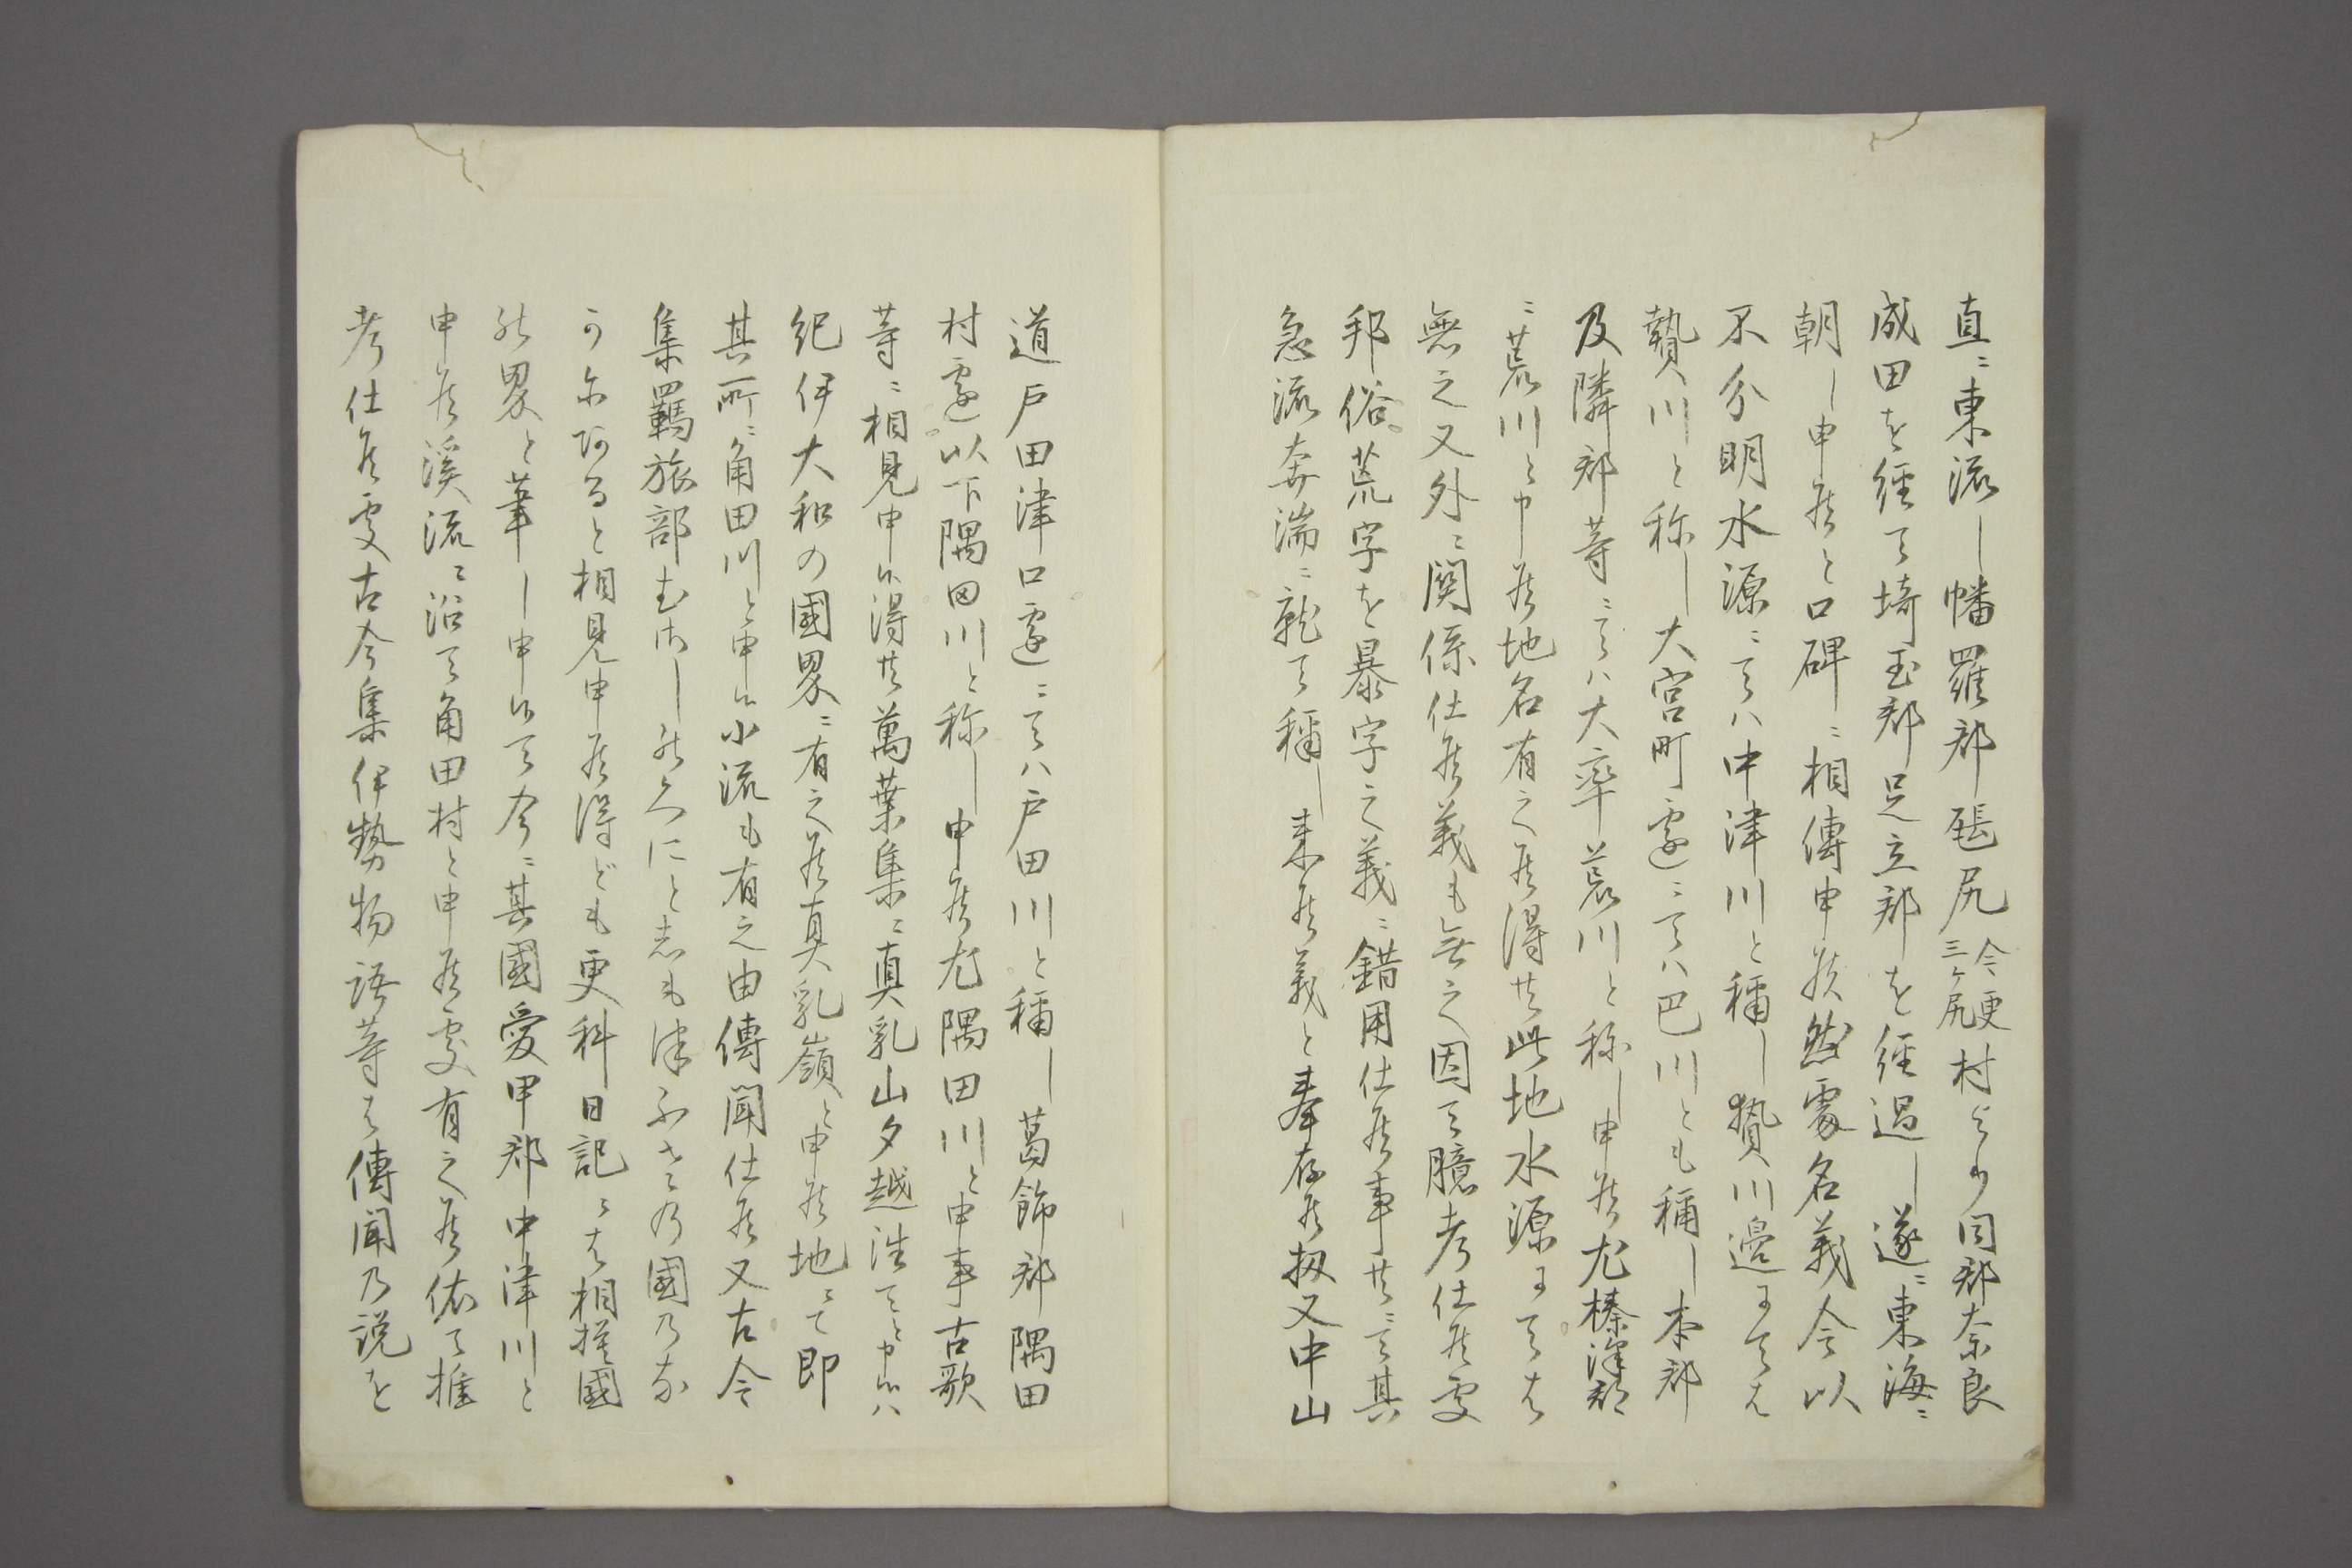 直ニ東流し幡羅郡𤭖尻今更三ケ尻村より同郡奈良
成田を經て埼玉郡足立郡を經過し遂ニ東海ニ
朝し申候と口碑ニ相傳申候然處名義今以
不分明水源ニてハ中津川と稱し贄川邉ニては
贄川と称し大宮町邊ニてハ巴川とも稱し本郡
及隣郡等ニてハ大率荒川と称し申候尤榛澤郡
ニ荒川と申候地名有之候得共此地水源ニては
無之又外ニ関係仕候義も無之因て臆考仕候處
邦俗荒字を暴字之義ニ錯用仕候事共ニて其
急流奔湍ニ就て稱し来候義と奉存候扨又中山
道戸田津口邊ニてハ戸田川と稱し葛飾郡隅田
村邊以下隅田川と称し申候尤隅田川と申事古歌
等ニ相見申候得共萬葉集ニ真乳山夕越活てと申候ハ
紀伊大和の國界ニ有之候真乳嶺と申候地ニて即
其所ニ角田川と申候小流も有之由傳聞仕候又古今
集羈旅部むさしのくにとしもつふさの國のな
かにあると相見申候得ども更科日記には相摸國
の界と筆し申候て今ニ其國愛甲郡中津川と
申候溪流ニ沿て角田村と申候處有之候依て推
考仕候處古今集伊勢物語等は傳聞の説を